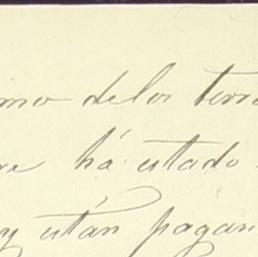 mo delos terr
há estado
y están pagan